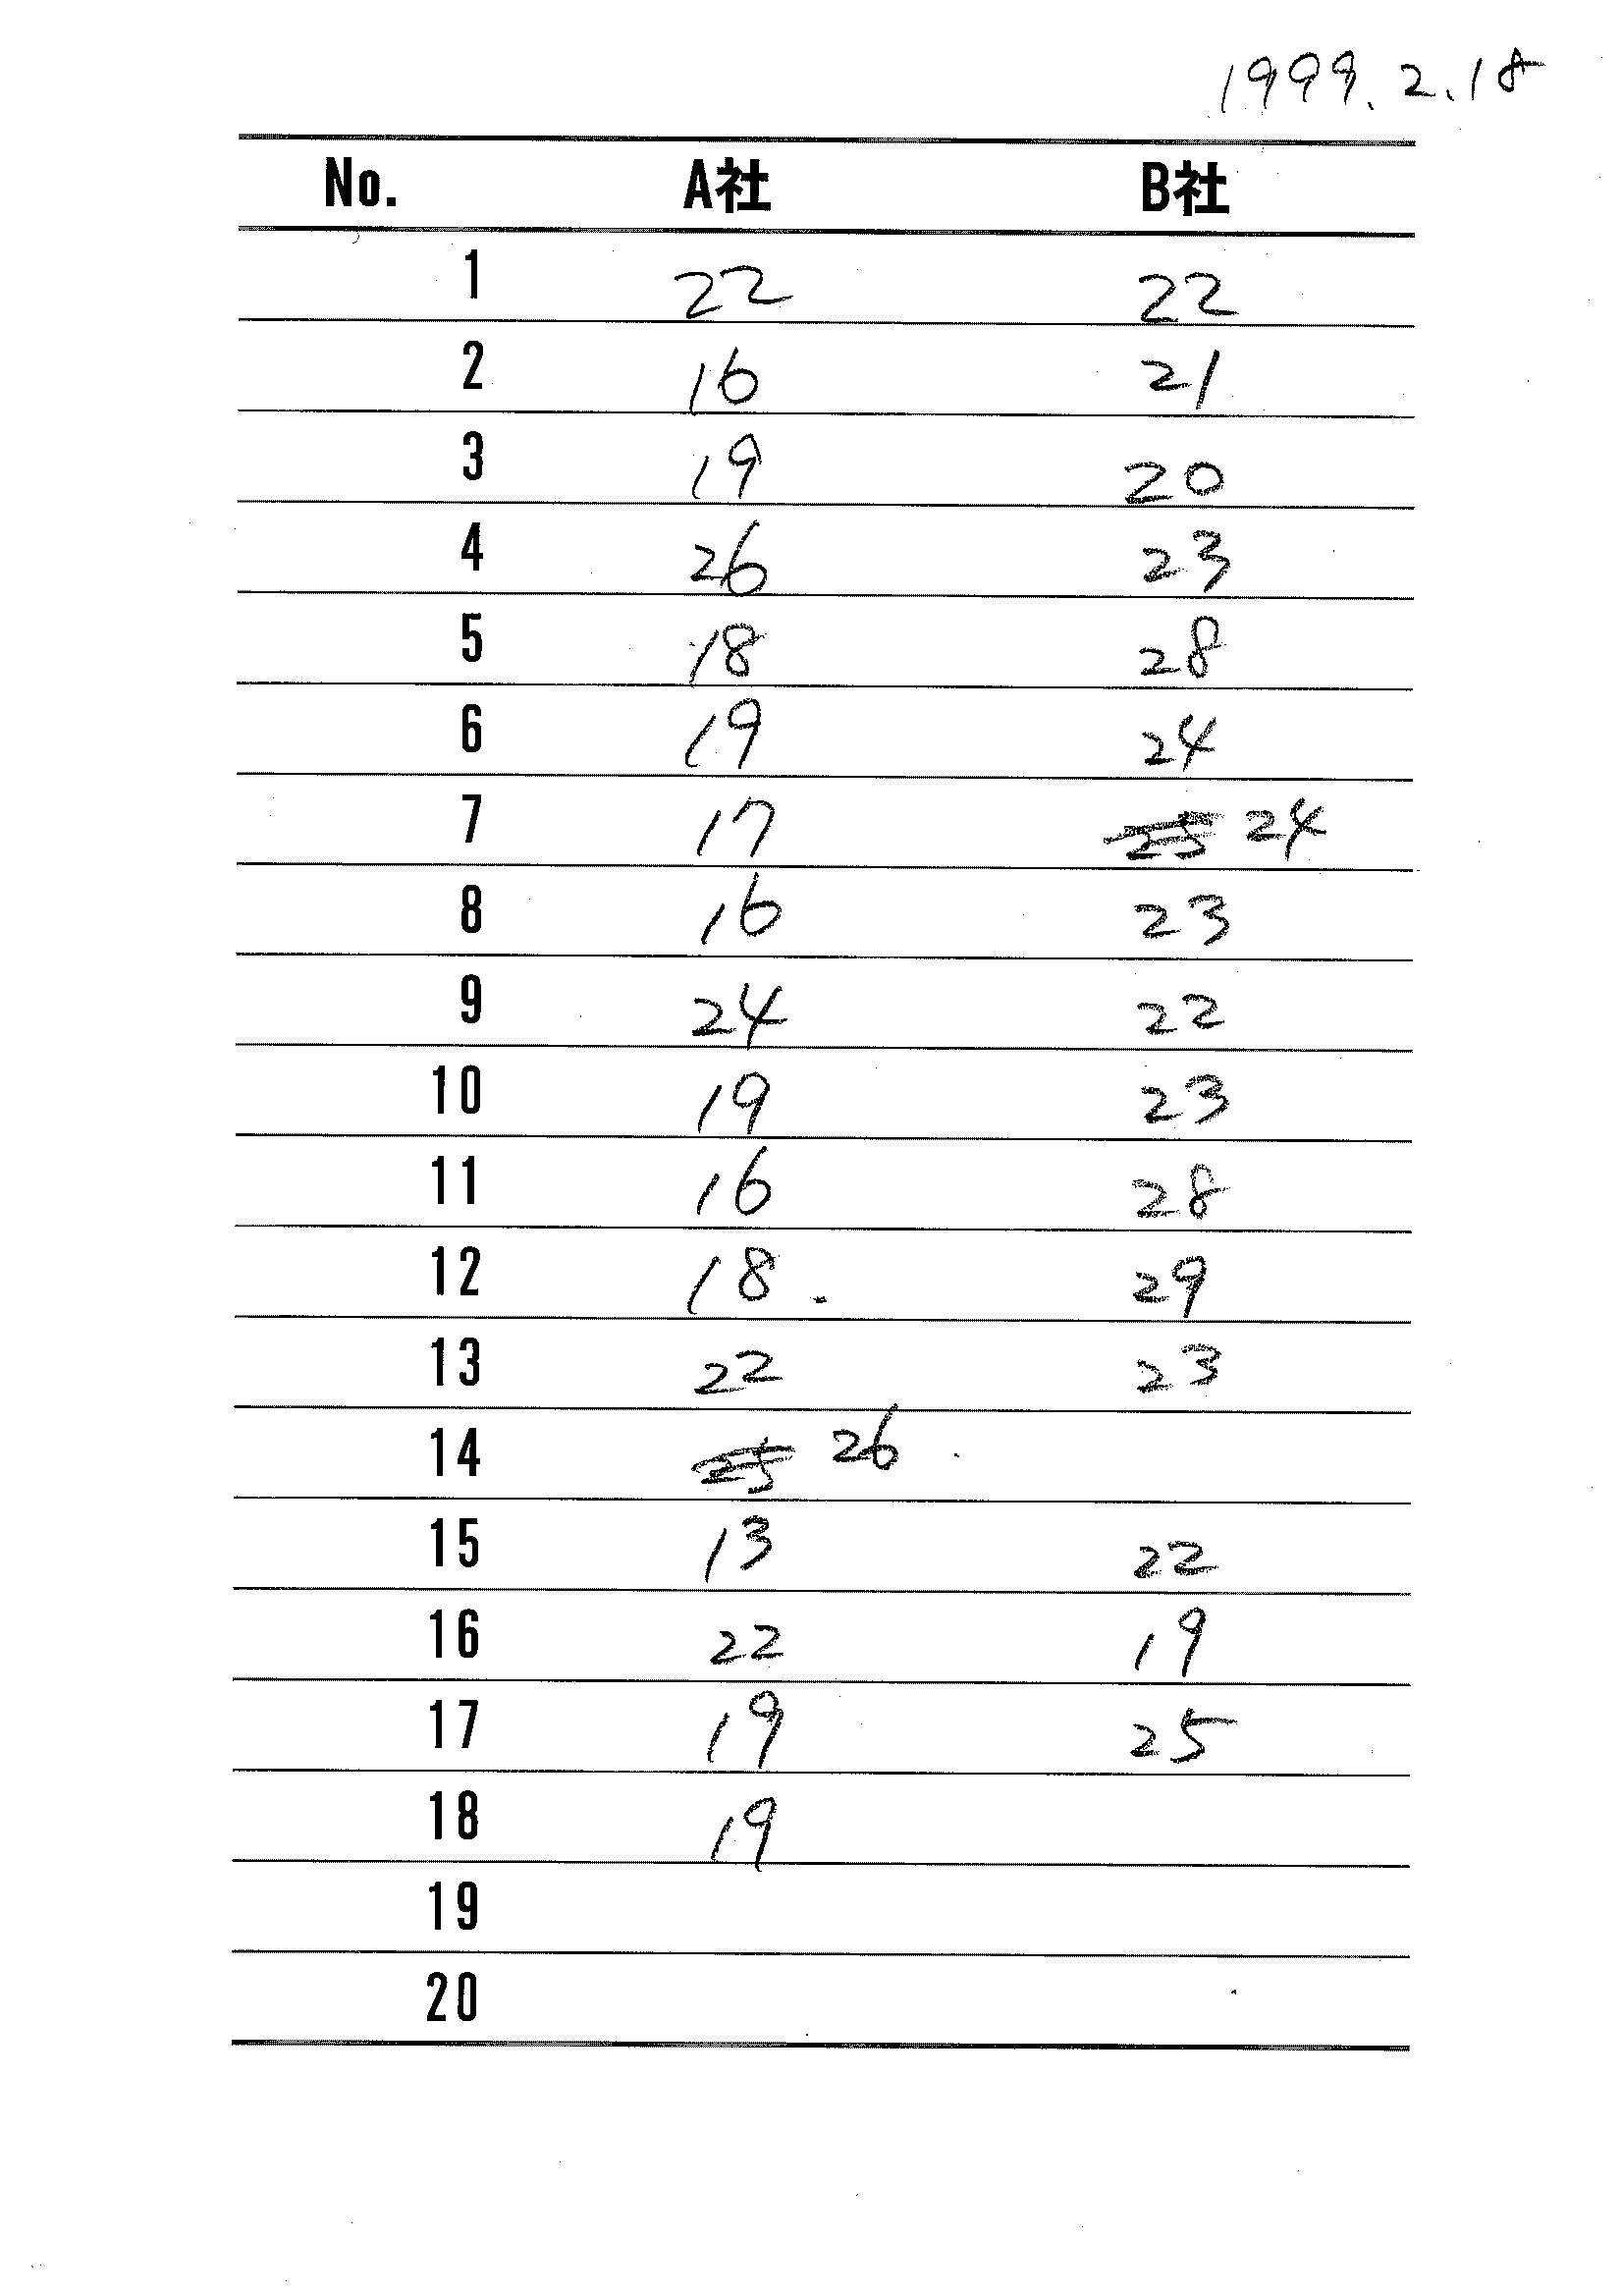 1999.2.18
No. A社 B社
1 22 22
2 16 21
3 19 20
4 26 23
5 18 28
6 19 24
7 17 25 24
8 16 23
9 24 22
10 19 23
11 16 28
12 18. 29
13 22 23
14 25 26
15 13 22
16 22 19
17 19 25
18 19
19
20